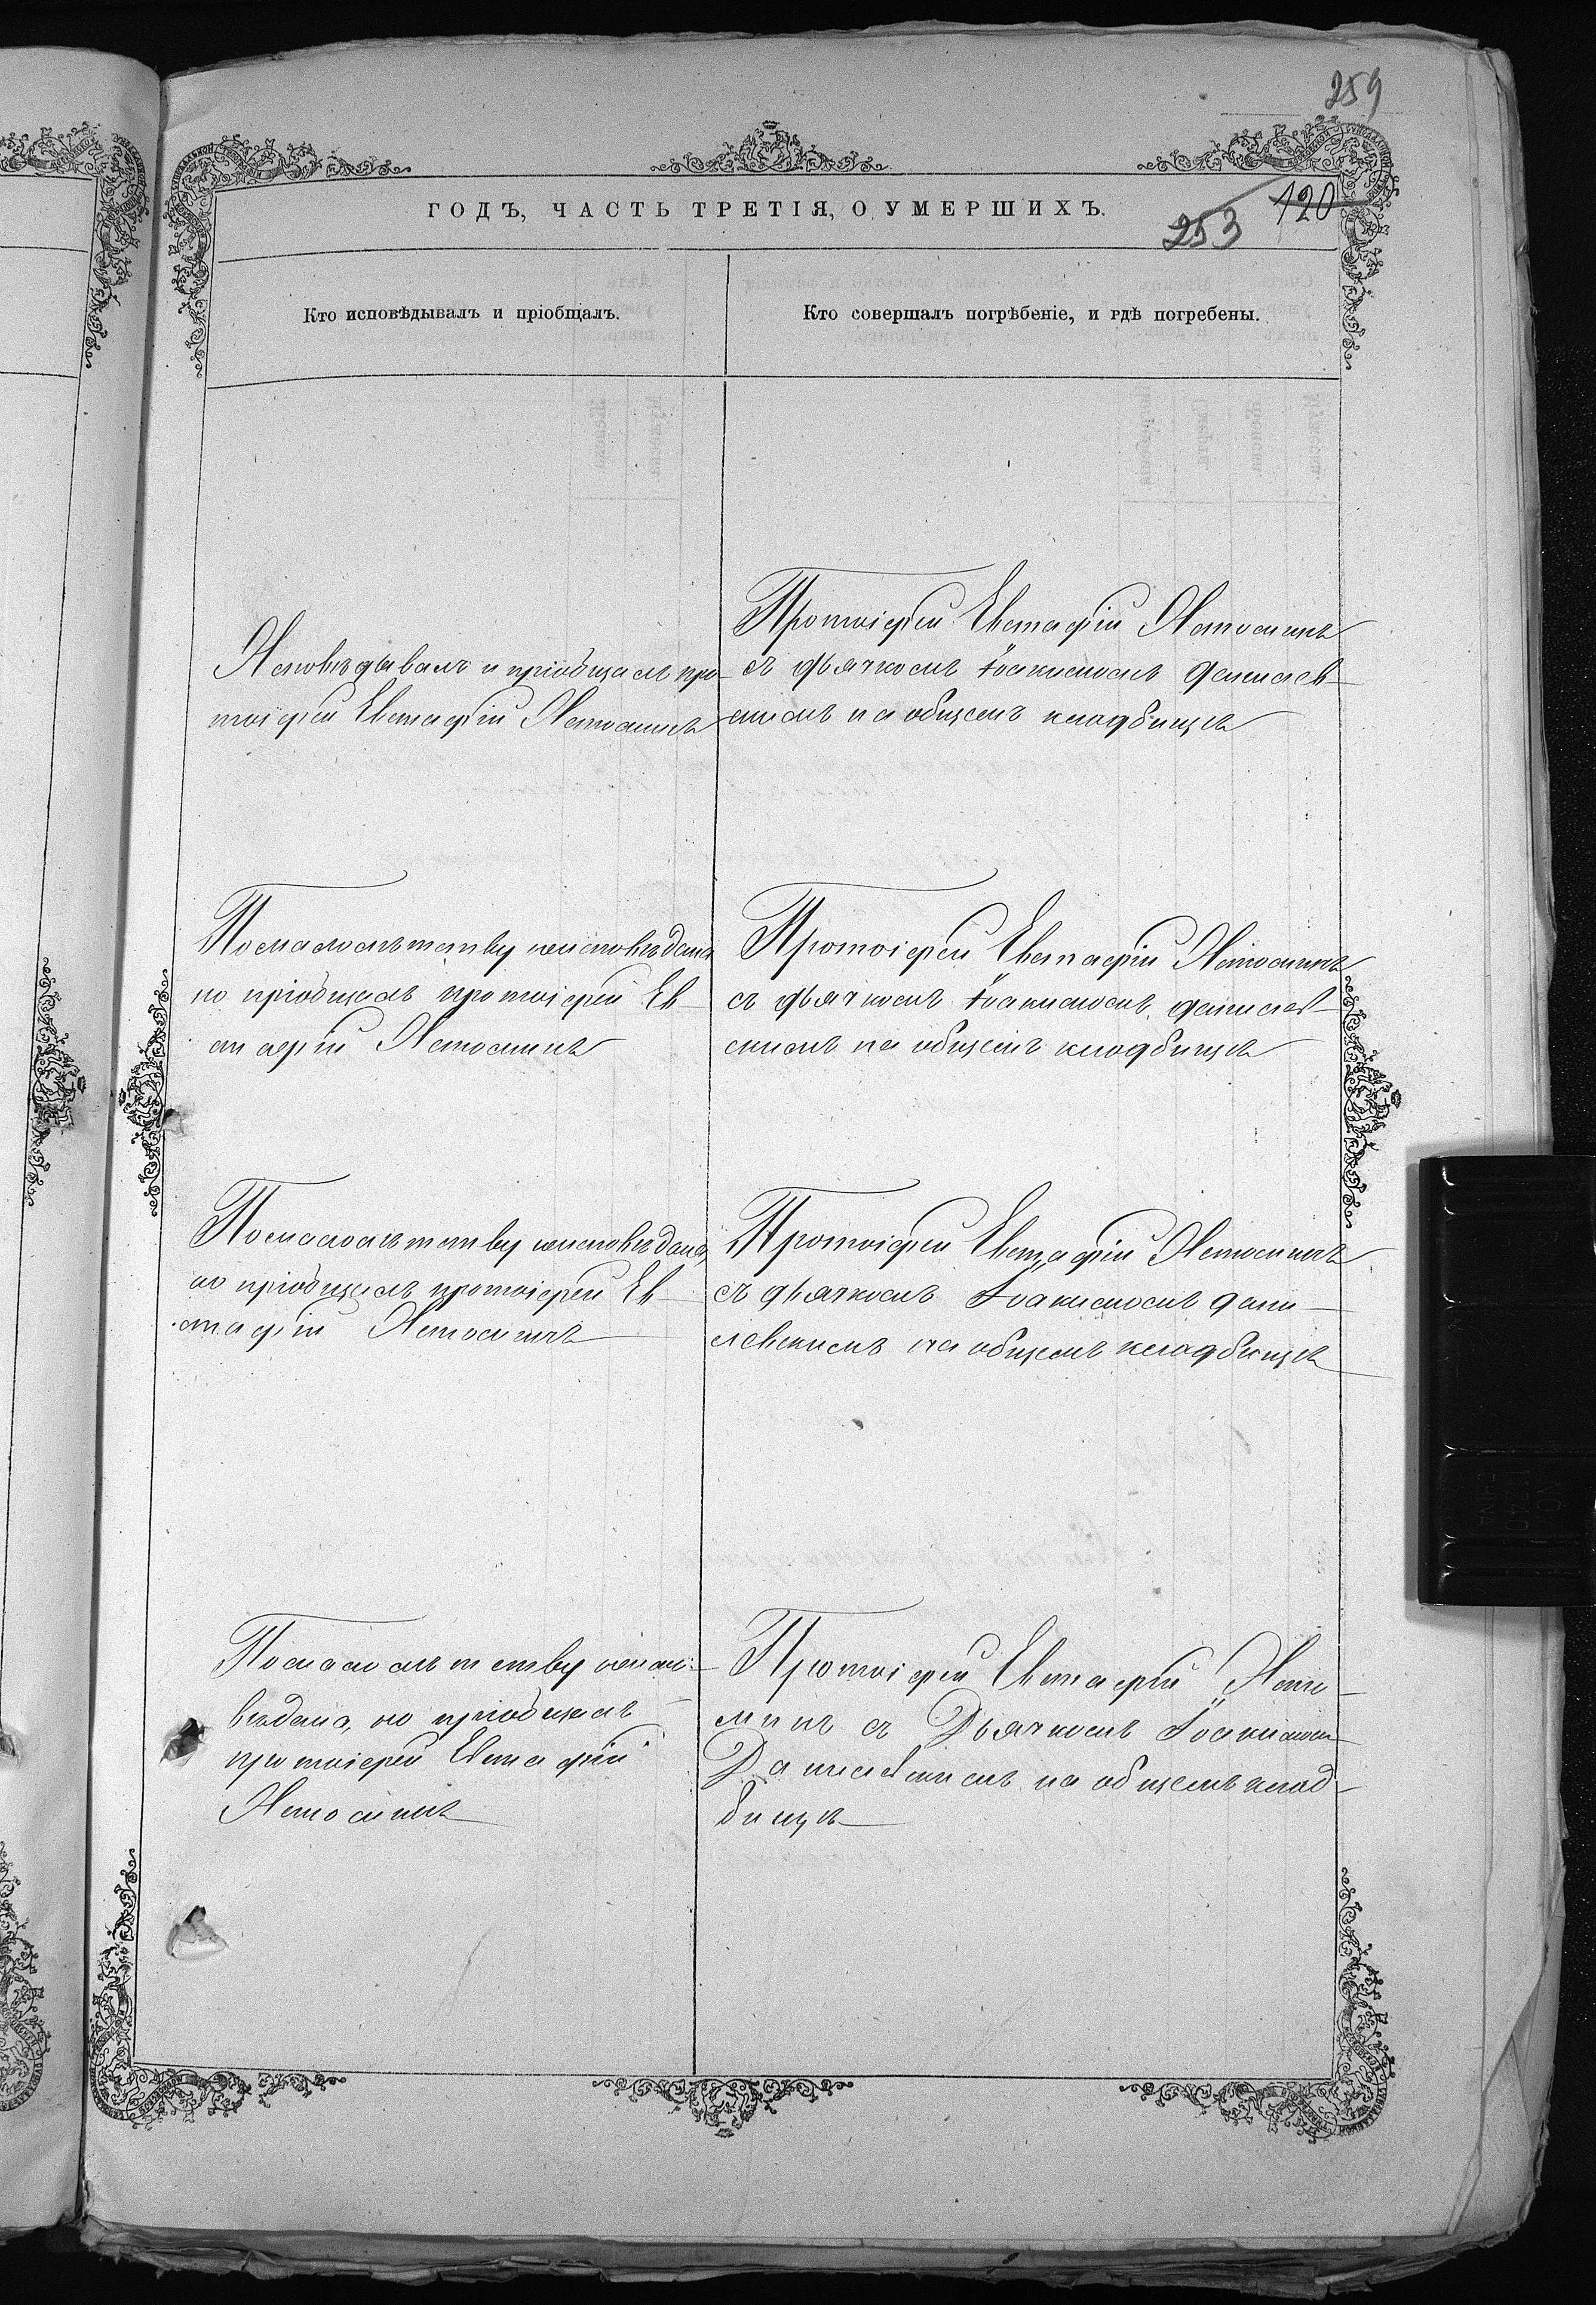 259
ГОДЪ, ЧАСТЬ ТРЕТІЯ, О УМЕРШИХЪ.
253 120
Кто исповѣдывалъ и пріобщалъ.
Кто совершалъ погрѣбеніе, и гдѣ погребены.
Исповѣдывалъ и пріобщалъ про-
тоіерей Евстафій
Протоіерей Евстафій
съ дьячкомъ Іоакимомъ Данилев-
скимъ на общемъ кладбищѣ
По малолѣтству неисповѣдана
но пріобщалъ протоіерей Ев-
стафій
Протоіерей Евстафій
съ дьячкомъ Іоакимомъ Данилев-
скимъ на общемъ кладбищѣ
По малолѣтству неисповѣдана,
но пріобщалъ протоіерей Ев-
стафій
Протоіерей Евстафій
съ дьячкомъ Іоакимомъ Дани-
левскимъ на общемъ кладбищѣ
По малолѣтству неиспо-
вѣдана, но пріобщалъ
протоіерей Евстафій
Протоіерей Евстафій
съ Дьячкомъ Іоакимом
Данилевскимъ на общемъ клад-
бищѣ